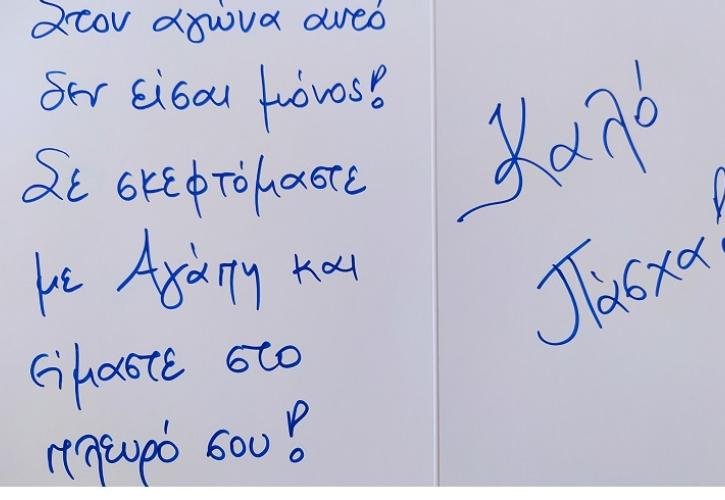 Στον αγώνα αυτό
δεν είσαι μόνος!
Σε σκεφτόμαστε
με Αγάπη και
είμαστε στο
πλευρό σου!
Καλό
Πάσχα!